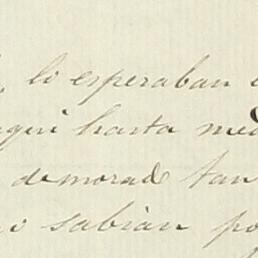 lo esperaban
aqui hasta med
demorado tan
sabian po